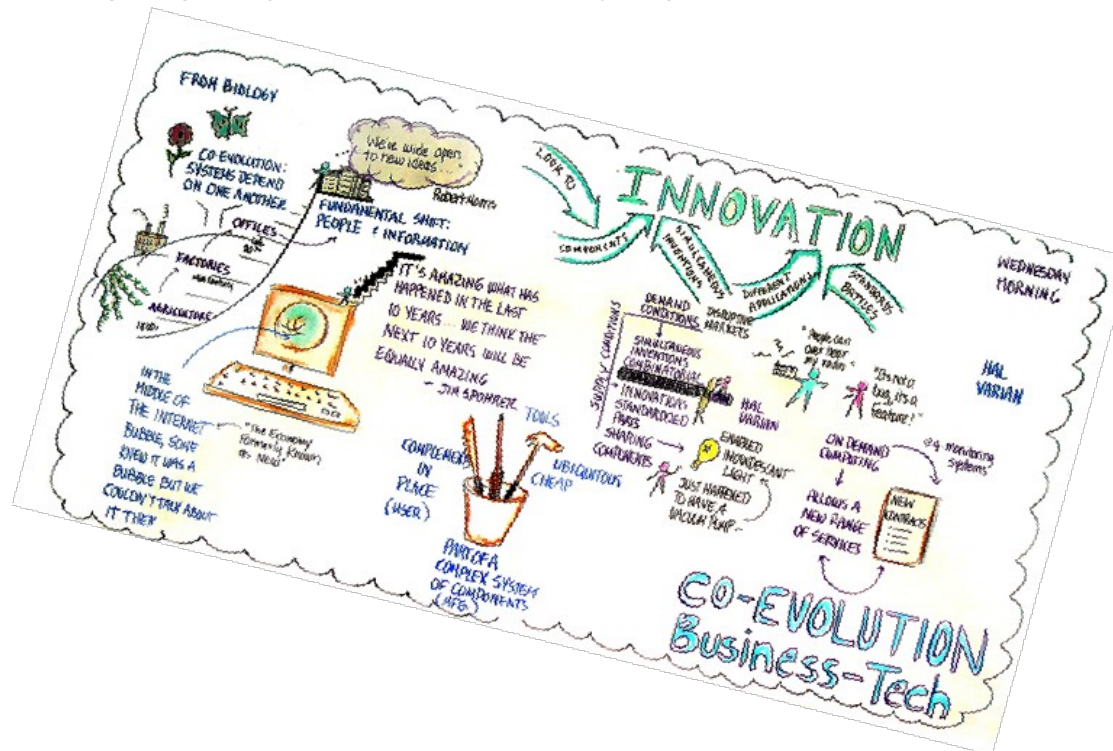 FROM BIOLOGY
CO-EVOLUTION:
SYSTEMS DEPEND
ON ONE ANOTHER
OFFICES
FACTORIES
AGRICULTURE
1800
We're wide open
to new ideas...
Robert Morris
FUNDAMENTAL SHIFT:
PEOPLE & INFORMATION
IT'S AMAZING WHAT HAS
HAPPENED IN THE LAST
10 YEARS... WE THINK THE
NEXT 10 YEARS WILL BE
EQUALLY AMAZING
- JIM SPOHRER
IN THE
MIDDLE OF
THE INTERNET
BUBBLE, SOME
KNEW IT WAS A
BUBBLE BUT WE
COULDN'T TALK ABOUT
IT THEN
"The Economy
Formerly Known
as New"
COMPLEMENTS
IN
PLACE
(USER)
TOOLS
UBIQUITOUS
CHEAP
PART OF A
COMPLEX SYSTEM
OF COMPONENTS
(MFG.)
LOOK TO
INNOVATION
COMPONENTS
SIMULTANEOUS
INVENTIONS
DIFFERENT
APPLICATIONS
STANDARDS
BATTLES
WEDNESDAY
MORNING
HAL
VARIAN
DEMAND
CONDITIONS
DISRUPTIVE
MARKETS
SUPPLY CONDITIONS
SIMULTANEOUS
INVENTIONS
COMBINATORIAL
INNOVATIONS
STANDARDIZED
PARTS
SHARING
COMPONENTS
HAL
VARIAN
"People can
over hear
my radio"
"It's not a
bug, it's a
feature!"
ENABLED
INCANDESCANT
LIGHT
JUST HAPPENED
TO HAVE A
VACUUM PUMP
ON DEMAND
COMPUTING
eg monitoring
systems
ALLOWS A
NEW RANGE
OF SERVICES
NEW
CONTRACTS
CO-EVOLUTION
Business-Tech